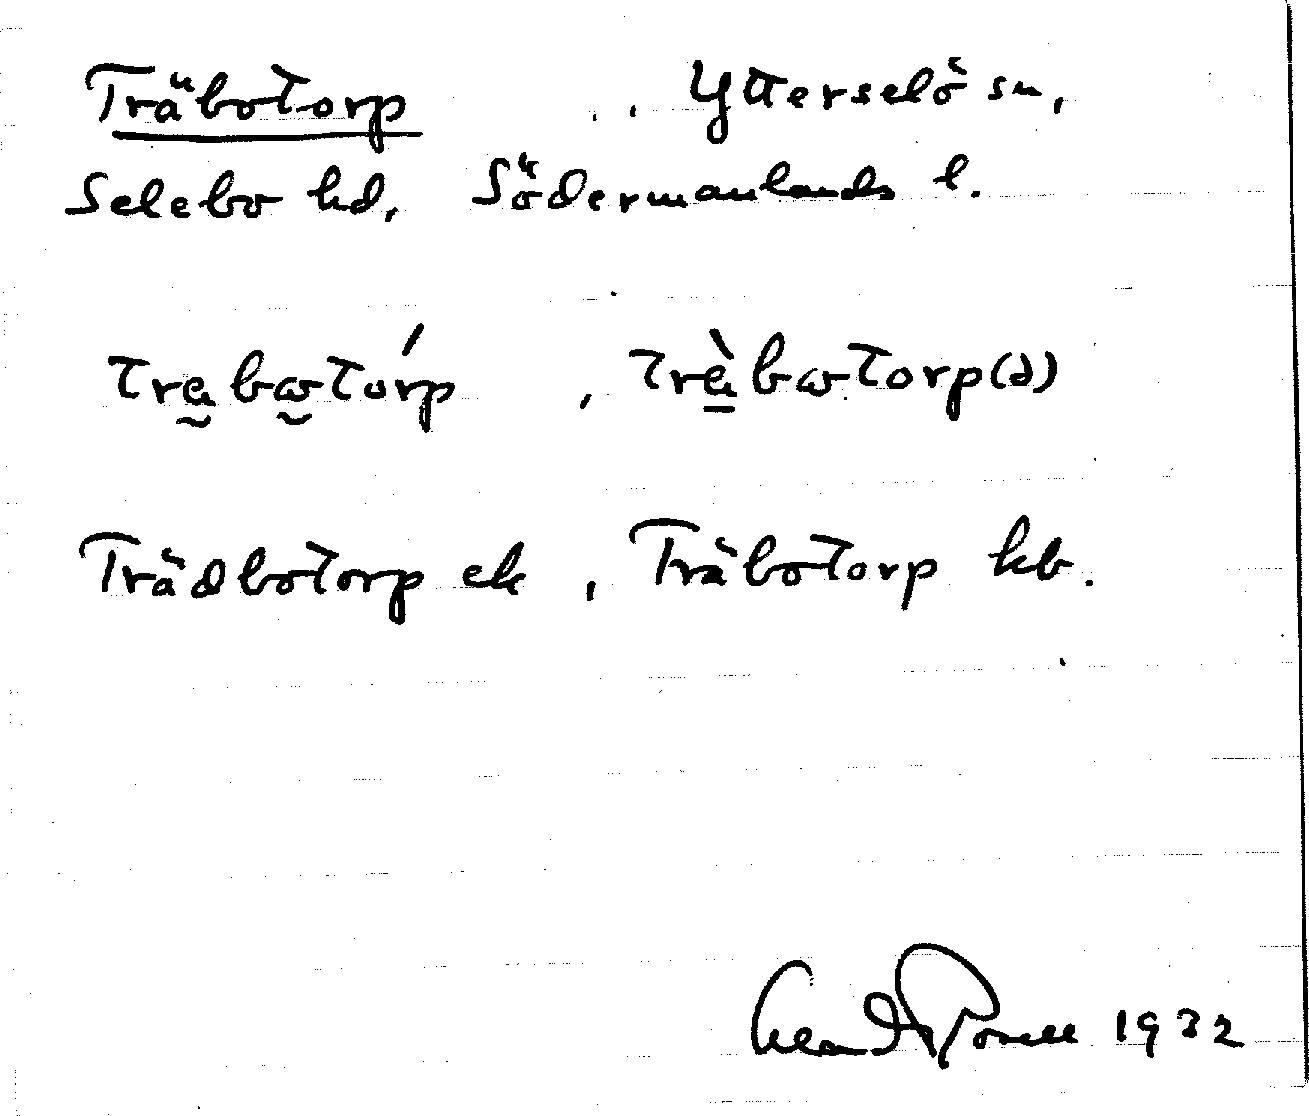 Träbotorp , , Ytterselö sn,
Selebo hd, Södermanlands l.
træ̰bω̰tórp , træ̠̀bωtorp(ə)
Trädbotorp ek , Träbotorp kb.
1932